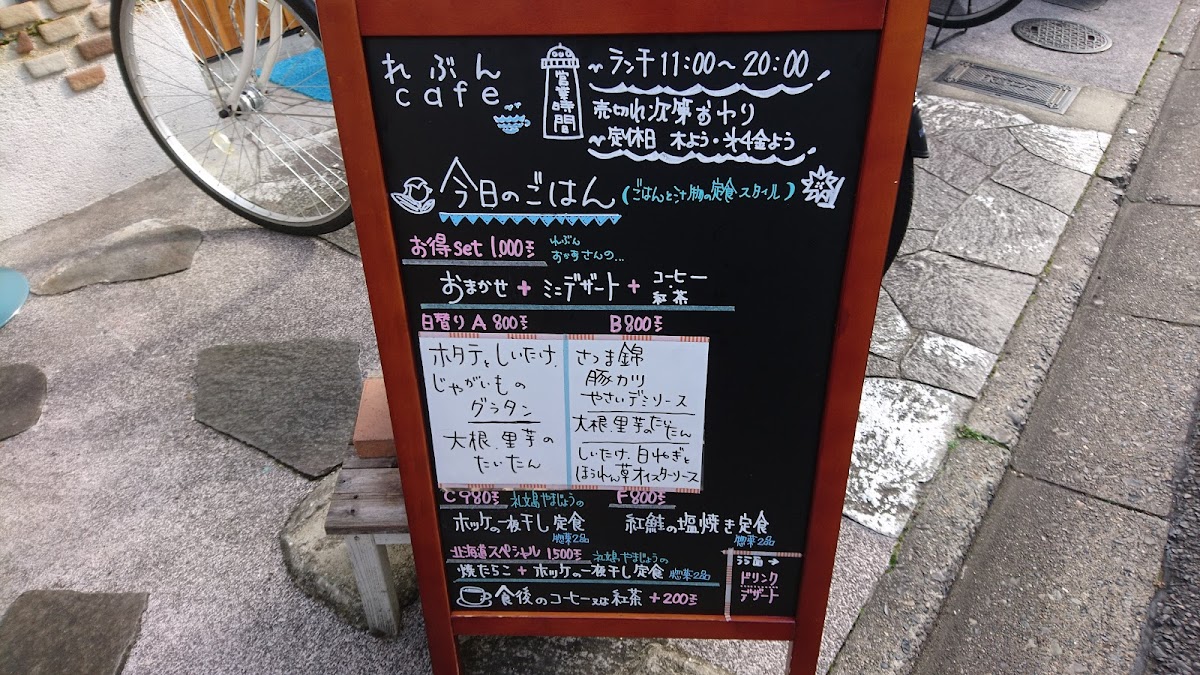 れぶん
cafe
営業時間
〜ランチ 11:00〜20:00
売切れ次第おわり
〜定休日 木よう・金よう
今日のごはん(ごはんと汁物の定食スタイル)
お得set 1,000 れぶん
おかずさんの...
おまかせ + ミニデザート + コーヒー
紅茶
日替り A 800 B 800
ホタテとしいたけ、
じゃがいもの
グラタン
大根、里芋の
たいたん
さつま錦
豚カツ
やさいデミソース
大根、里芋のたいたん
しいたけ、白ねぎと
ほうれん草オイスターソース
C 980 礼文島やまじょうの F 800
ホッケの一夜干し定食
惣菜2品
紅鮭の塩焼き定食
惣菜2品
北海道スペシャル 1,500 礼文島やまじょうの
焼たらこ + ホッケの一夜干し定食 惣菜2品
食後のコーヒー又は紅茶 +200
うら面→
ドリンク
デザート